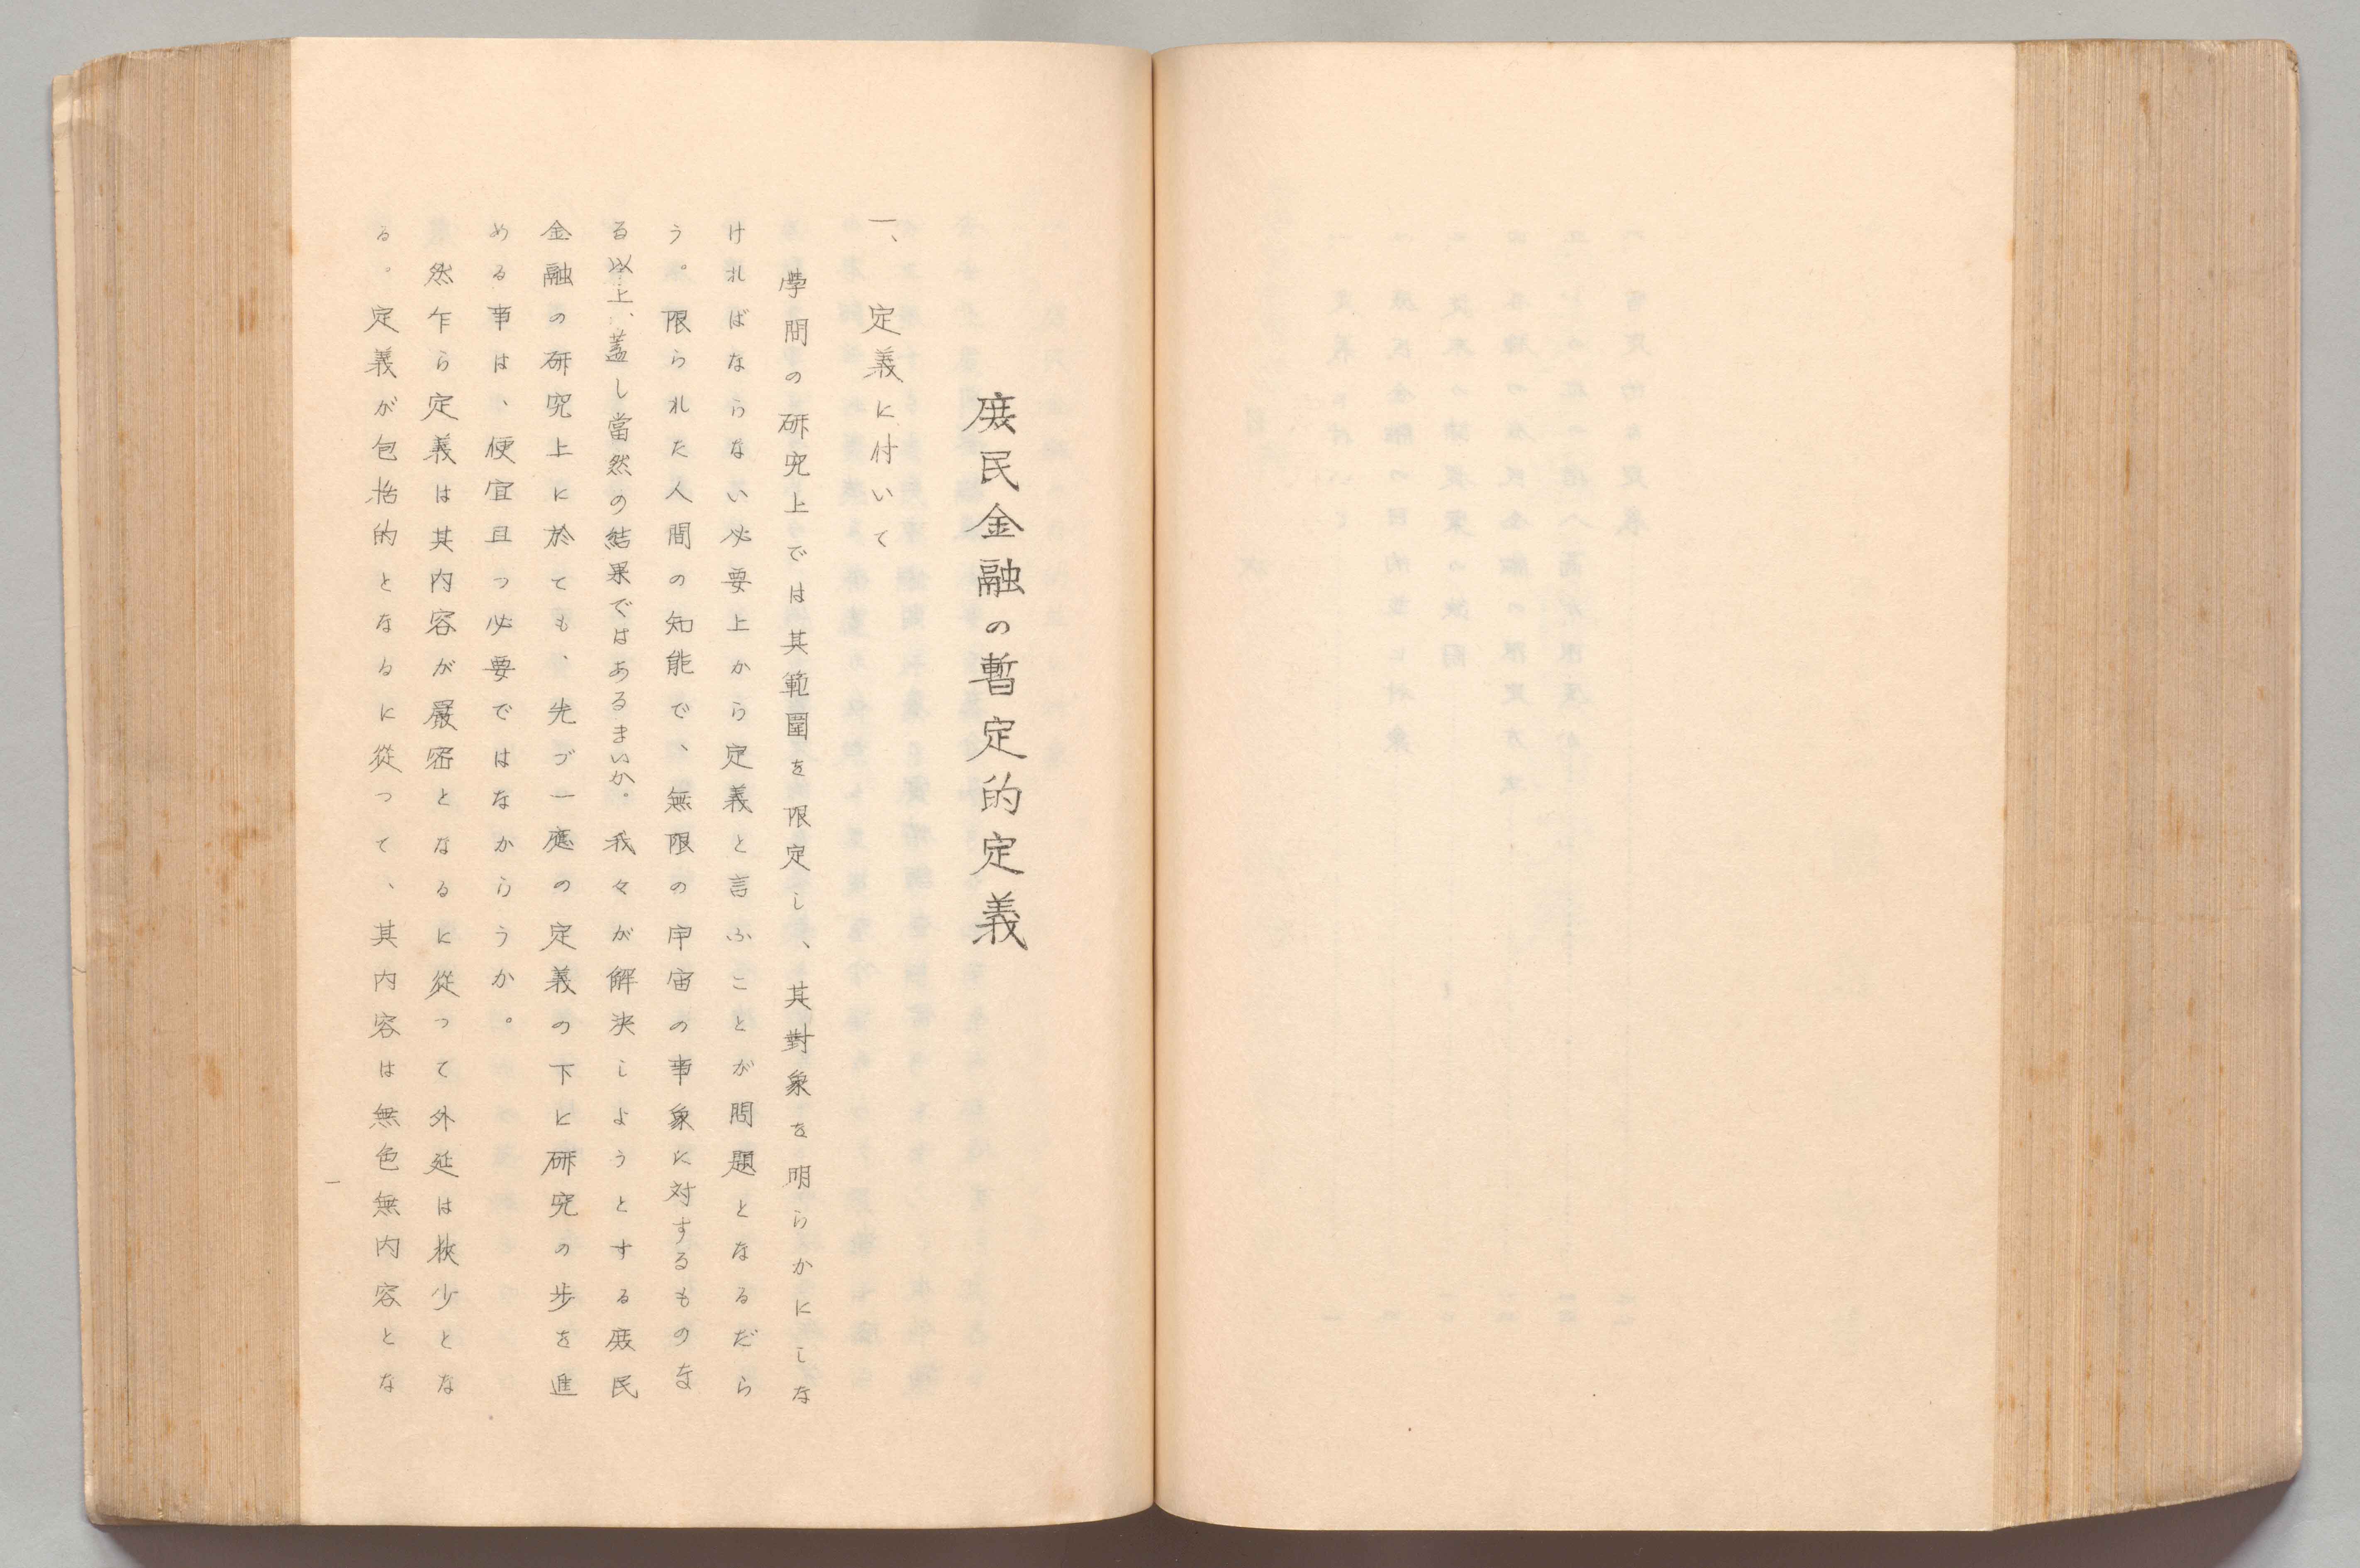 庶民金融の暫定的定義
一、定義に付いて
學問の研究上では其範圍を限定し、其對象を明らかにしな
ければならない必要上から定義と言ふことが問題となるだら
う。限られた人間の知能で、無限の宇宙の事象に対するものな
る以上、蓋し當然の結果ではあるまいか。我々が解決しようとする庶民
金融の研究上に於ても、先づ一應の定義の下に研究の歩を進
める事は、便宜且つ必要ではなからうか。
然乍ら定義は其内容が嚴密となるに從って外延は狹少とな
る。定義が包括的となるに從って、其内容は無色無内容とな
一